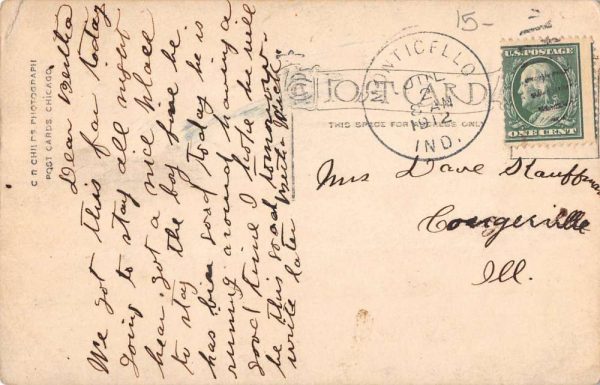 15-
MONTICELLO
JUL
2
1912
IND.
U.S. POSTAGE
ONE CENT
POST CARD
THIS SPACE FOR ADDRESS ONLY
C.R. CHILDS PHOTOGRAPH
POST CARDS, CHICAGO
Dear Bertha
We got this far today
going to stay all night
hear, got a nice place
to stay the boy bine be
has bien good today he is
running around having a
good time I hope he will
be this good tomorrow.
write later
Mrs Dave Stauffman
Congerville
Ill.